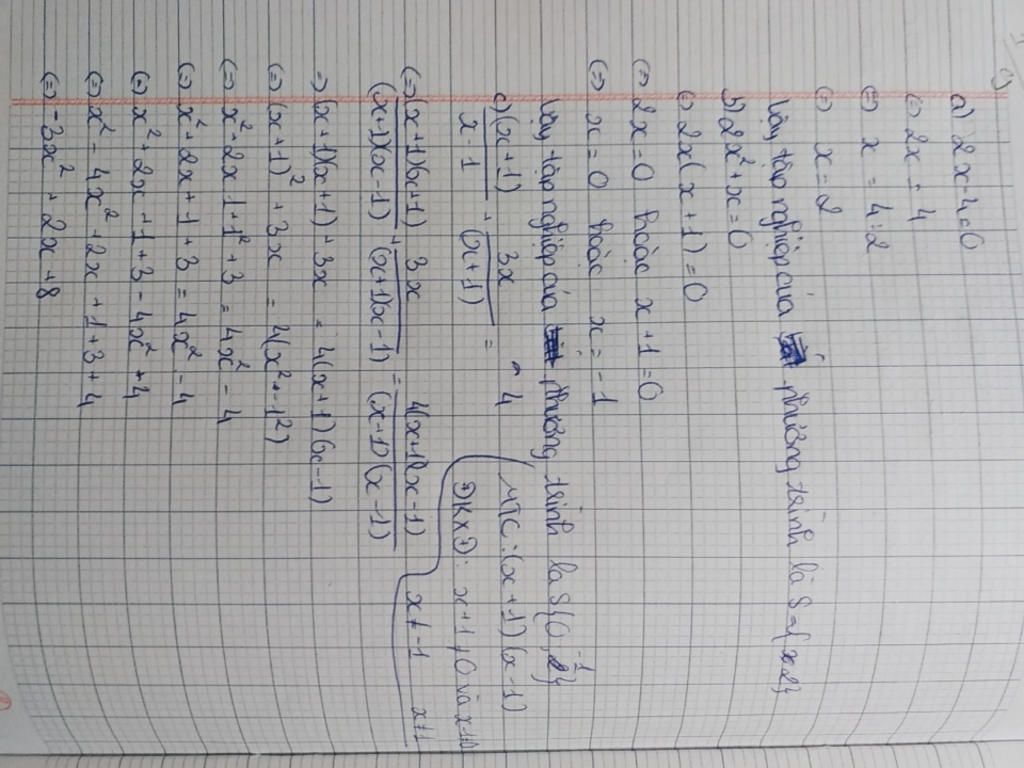 a) 2x - 4 = 0
(=) 2x = 4
(=) x = 4 : 2
(=) x = 2
Vậy tập nghiệp của phương trình là S = { x2}
b) 2x² + x = 0
(=) 2x(x + 1) = 0
(=) 2x = 0 hoặc x + 1 = 0
(=) x = 0 hoặc x = -1
Vậy tập nghiệp của phương trình là S{0, -1}
c) (x + 1) / x - 1 + 3x / (x + 1) = 4
MTC : (x + 1) (x - 1)
ĐKXĐ : x + 1 ≠ 0 và x-1≠0
x ≠ -1 x ≠ 1
(=) (x + 1)(x + 1) / (x + 1)(x - 1) + 3x / (x + 1)(x - 1) = 4(x + 1)(x - 1) / (x - 1)(x - 1)
=) (x + 1)(x + 1) + 3x = 4(x + 1) (x - 1)
(=) (x + 1)² + 3x = 4(x² - 1²)
(=) x² + 2x 1 + 1² + 3 = 4x² - 4
(=) x² + 2x + 1 + 3 = 4x² - 4
(=) x² + 2x + 1 + 3 - 4x² + 4
(=) x² - 4x² + 2x + 1 + 3 + 4
(=) -3x² + 2x + 8